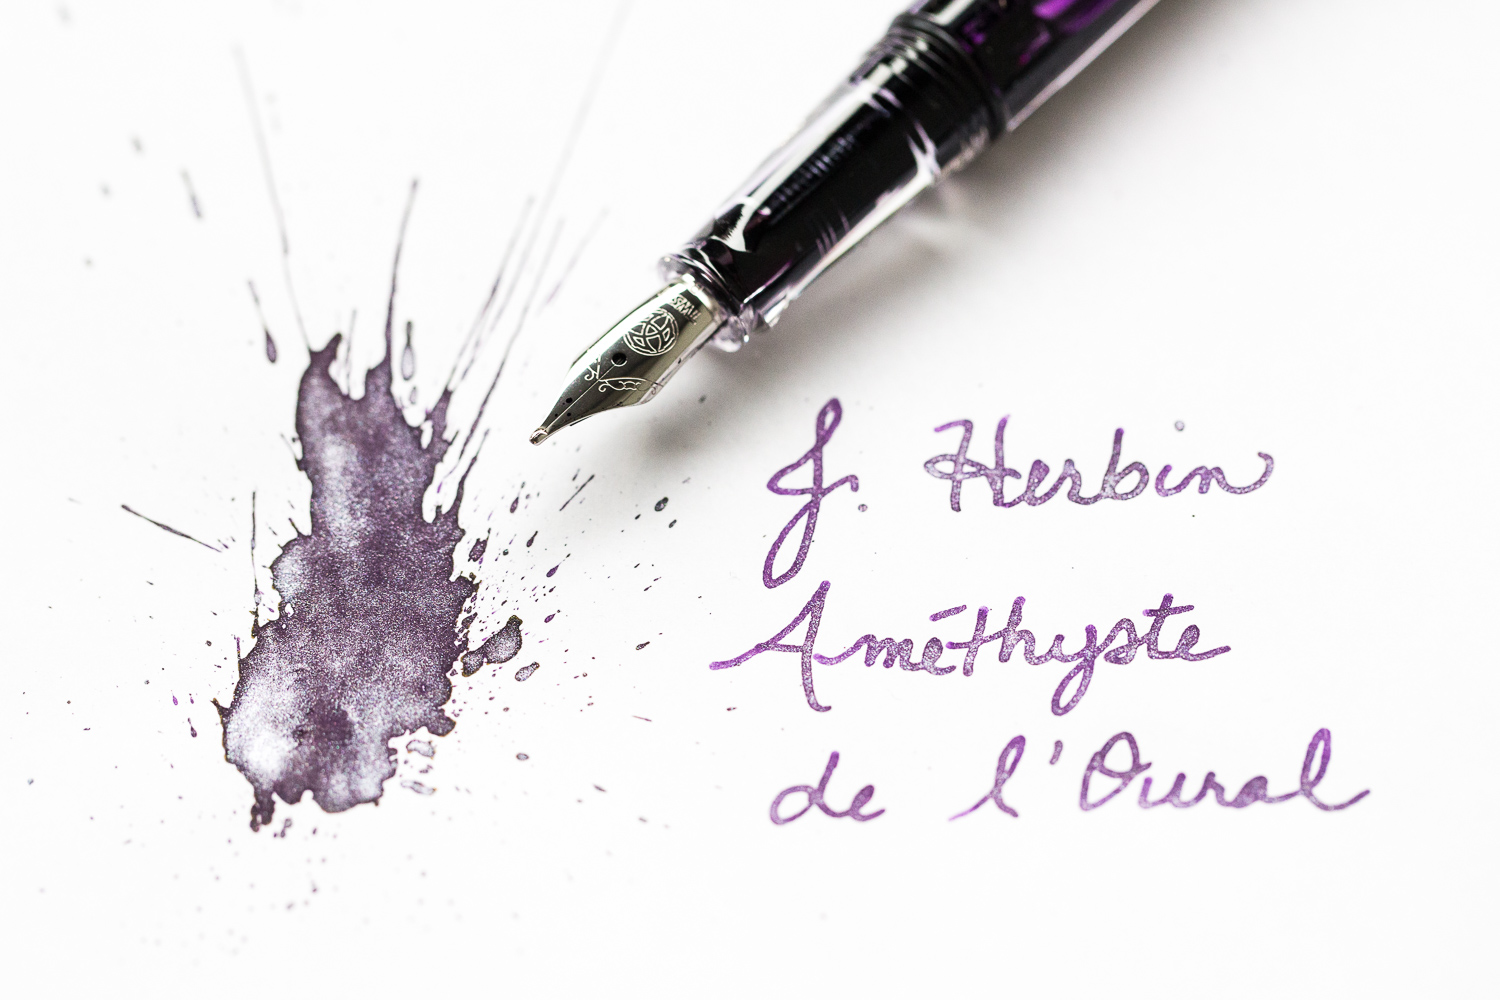 J. Herbin
Améthyste
de l'Oural